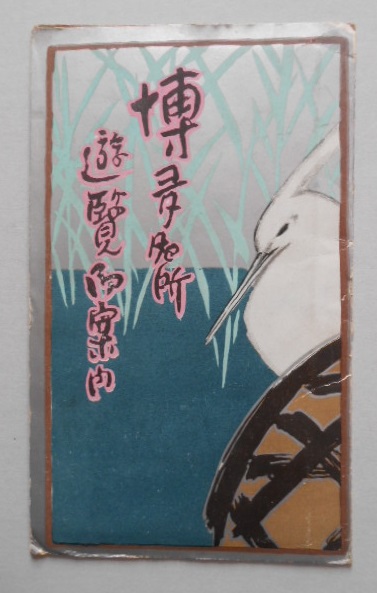 博多名所
遊覧御案内